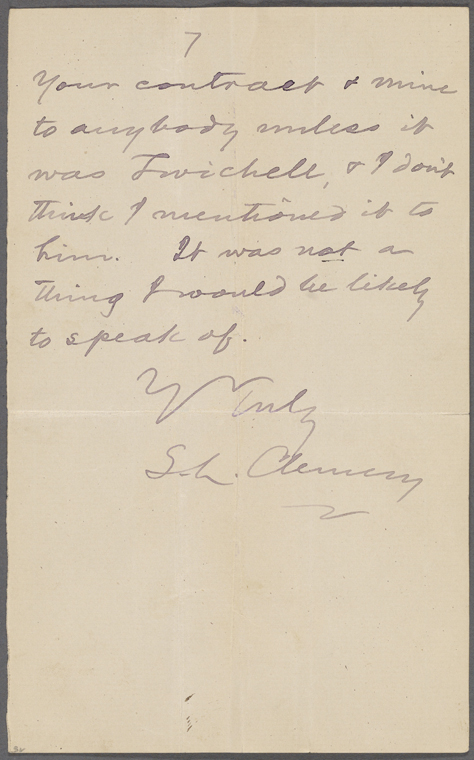 7
Your contract & mine
to anybody unless it
was Twichell, & I don't
think I mentioned it to
him. It was not a
thing I would be likely
to speak of.
Yrs Truly
S. L. Clemens